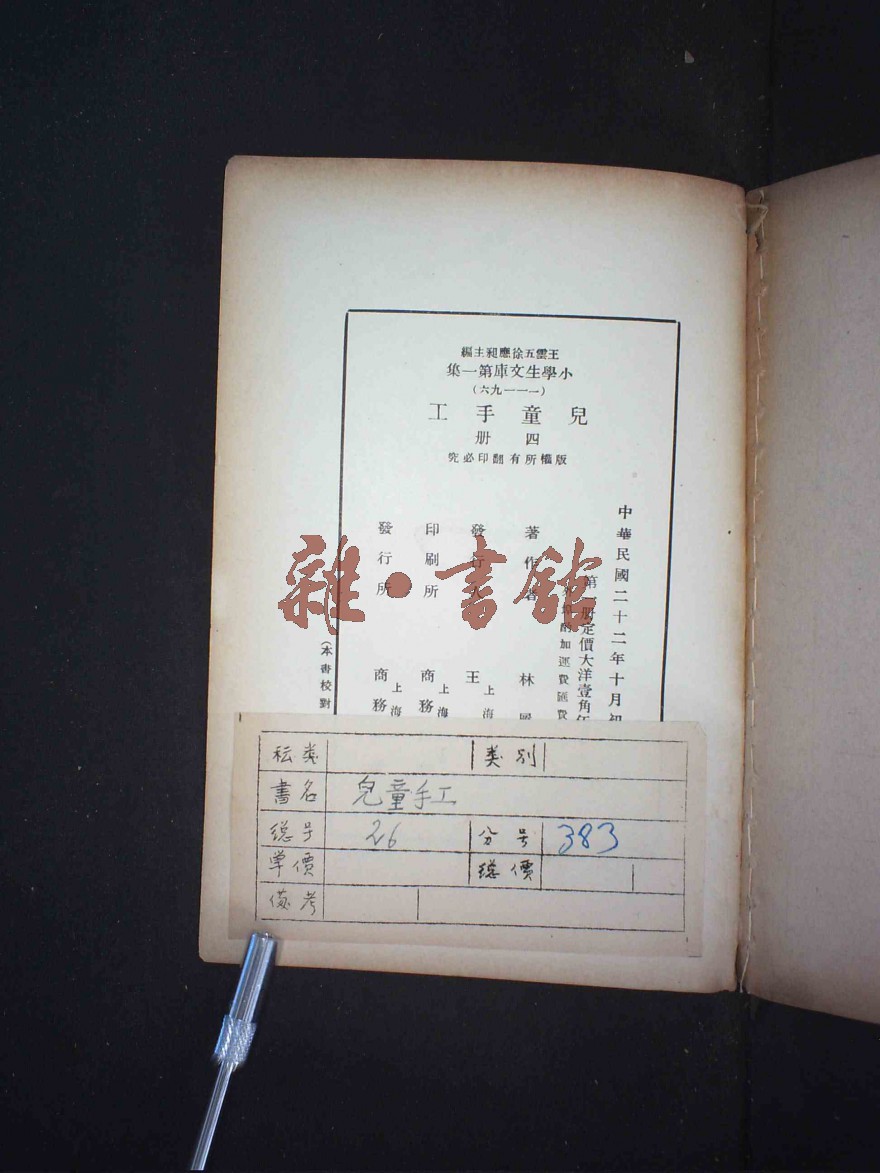 王雲五徐應昶主編
小學生文庫第一集
(一一一一九六)
兒童手工
四册
版權所有翻印必究
中華民國二十二年十月初
第一册定價大洋壹角伍
外埠酌加運費匯費
著作者 林
發行人 王
上海
印刷所 商務
上海
發行所 商務
上海
(本書校對
雜·書館
秐类
类别
書名 兒童手工
總号 26
分号 383
単價
總價
俻考